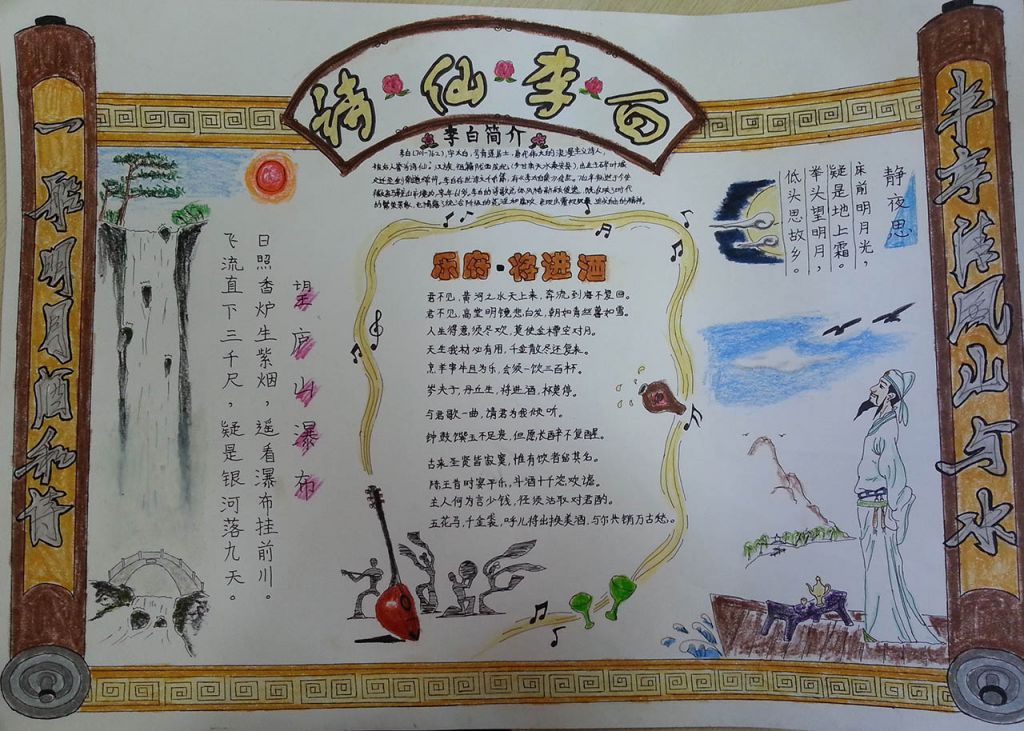 诗仙李白
李白简介
李白(701-762),字太白,号青莲居士,唐代伟大的浪漫主义诗人,
一聯明月酒和诗
半亭清風山与水
望庐山瀑布
日照香炉生紫烟,遥看瀑布挂前川。
飞流直下三千尺,疑是银河落九天。
乐府·将进酒
君不见,黄河之水天上来,奔流到海不复回。
君不见,高堂明镜悲白发,朝如青丝暮如雪。
人生得意须尽欢,莫使金樽空对月。
天生我材必有用,千金散尽还复来。
烹羊宰牛且为乐,会须一饮三百杯。
岑夫子,丹丘生,将进酒,杯莫停。
与君歌一曲,请君为我倾听。
钟鼓馔玉不足贵,但愿长醉不复醒。
古来圣贤皆寂寞,惟有饮者留其名。
陈王昔时宴平乐,斗酒十千恣欢谑。
主人何为言少钱,径须沽取对君酌。
五花马,千金裘,呼儿将出换美酒,与尔共销万古愁。
静夜思
床前明月光,
疑是地上霜。
举头望明月,
低头思故乡。